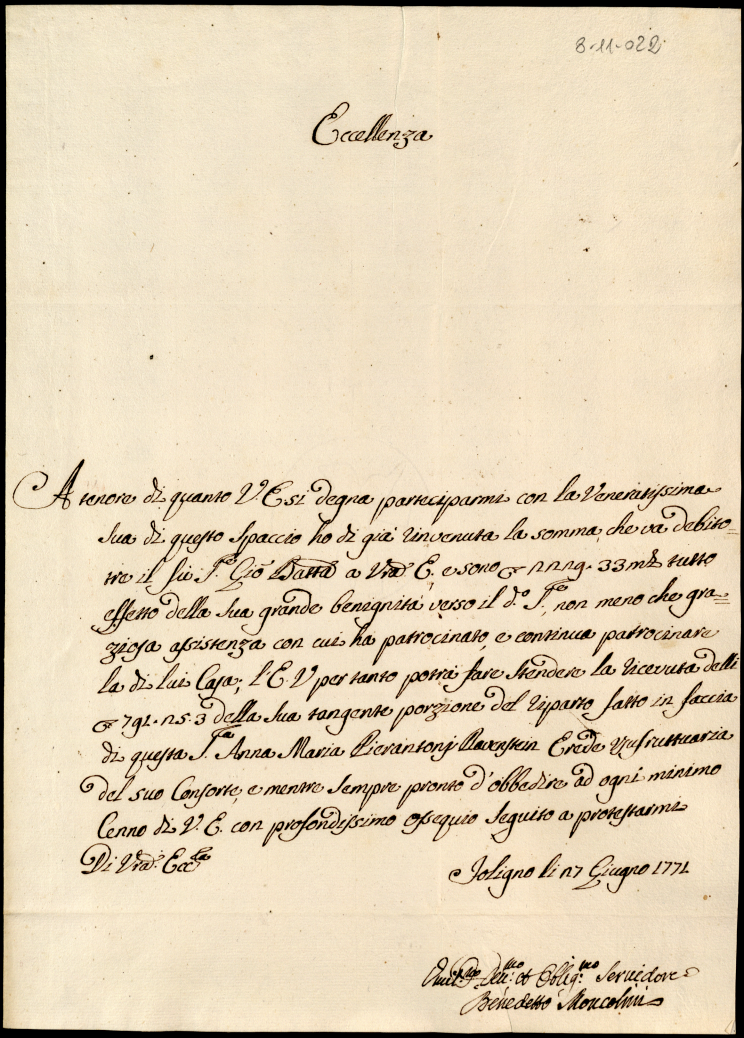 8-11-022
Eccellenza
A tenore di quanto V. E. si degna parteciparmi con la Veneratissima
sua di questo spaccio ho di già rinvenuta la somma, che va debito=
re il fù Sre Gio Batta a Vra E, e sono 33 mta tutto
effetto della sua grande benignità verso il do Sre, non meno che gra=
ziosa assistenza con cui ha patrocinato, e continua patrocinare
la di lui Casa; l'E. V. per tanto potrà fare stendere la ricevuta delli
791. della sua tangente porzione del riparto fatto in faccia
di questa Sra Anna Maria Pierantonj Ravenstein Erede Usufruttuaria
del suo Consorte, e mentre sempre pronto d'obbedire ad ogni minimo
Cenno di V. E. con profondissimo ossequio seguito a protestarmi
Di Vra Eccza
Foligno li 27 Giugno 1771
Devmo et Obligmo Servidore
Benedetto Moncolini